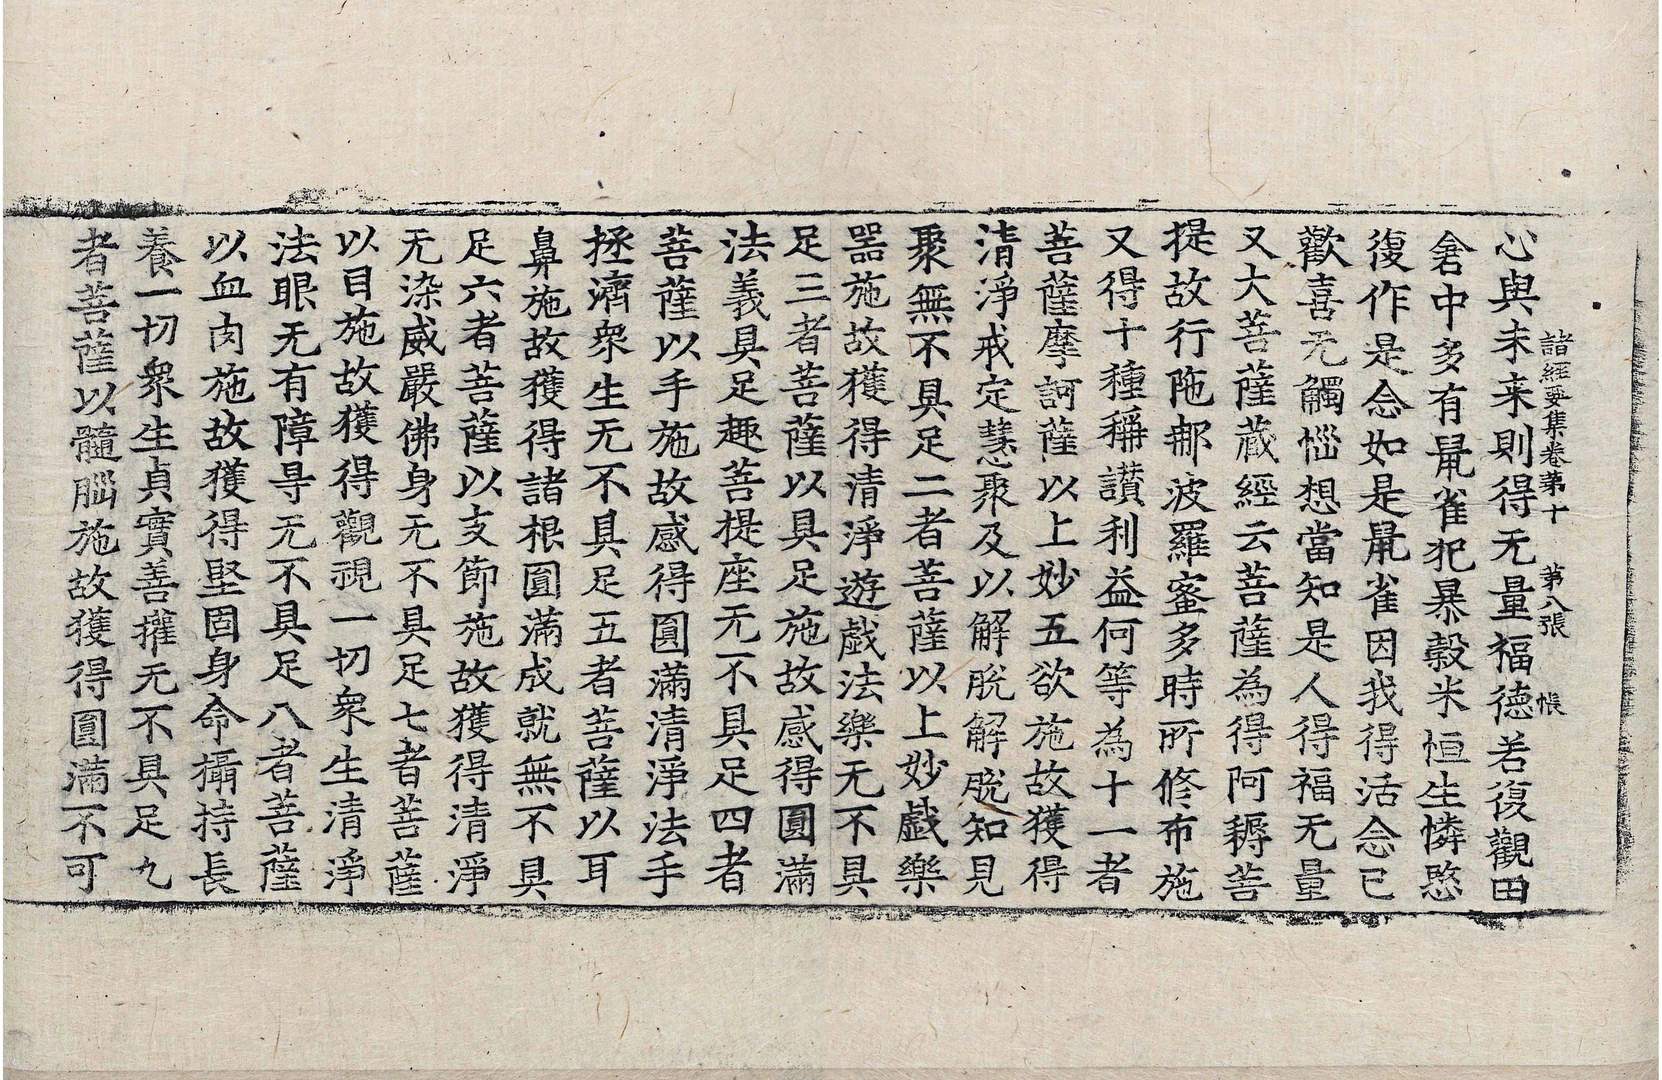 諸經要集卷第十　第八張　帳
心與未来則得无量福德若復觀田
倉中多有鼠雀犯暴穀米恒生憐愍
復作是念如是鼠雀因我得活念已
歡喜无觸惱想當知是人得福无量
又大菩薩藏經云菩薩為得阿耨菩
提故行陁𨙻波羅蜜多時所修布施
又得十種稱讃利益何等為十一者
菩薩摩訶薩以上妙五欲施故獲得
清淨戒定慧聚及以解脫解脫知見
聚無不具足二者菩薩以上妙戲樂
噐施故獲得清淨遊戲法樂无不具
足三者菩薩以具足施故感得圓滿
法義具足趣菩提座无不具足四者
菩薩以手施故感得圓滿清淨法手
拯濟衆生无不具足五者菩薩以耳
鼻施故獲得諸根圓滿成就無不具
足六者菩薩以支節施故獲得清淨
无染威嚴佛身无不具足七者菩薩
以目施故獲得觀視一切衆生清淨
法眼无有障㝵无不具足八者菩薩
以血肉施故獲得堅固身命攝持長
養一切衆生貞實善權无不具足九
者菩薩以髓腦施故獲得圓滿不可